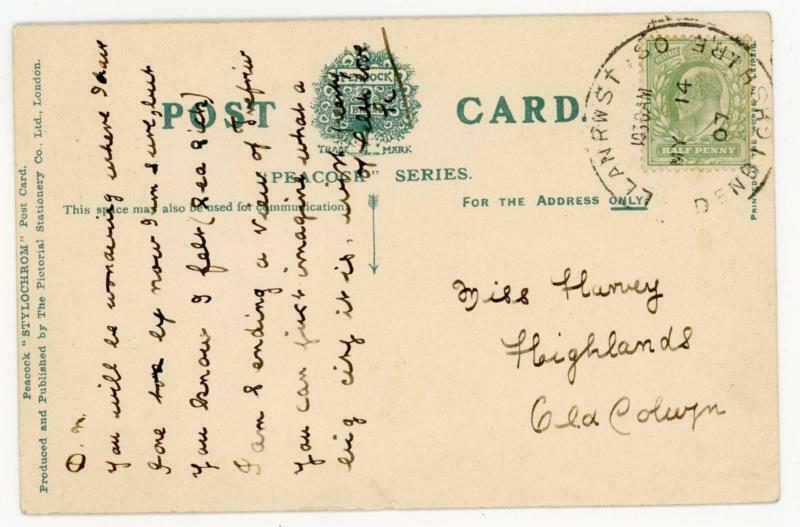 Peacock "STYLOCHROM" Post Card.
Produced and Published by The Pictorial Stationery Co., Ltd., London.
POST CARD.
PEACOCK
BRAND
TRADE MARK
"PEACOCK" SERIES.
This space may also be used for communication.
FOR THE ADDRESS ONLY.
HALF PENNY
LLANRWST S.O.
DENBIGHSHIRE
1030AM
MY 14
07
D. M.
You will be wondering where I have
gone by now I am sure, but
You know I felt (Sea Sick)
I am sending a view of Trefriw
You can just imagine what a
big city it is, with
love
Miss Harvey
Highlands
Old Colwyn